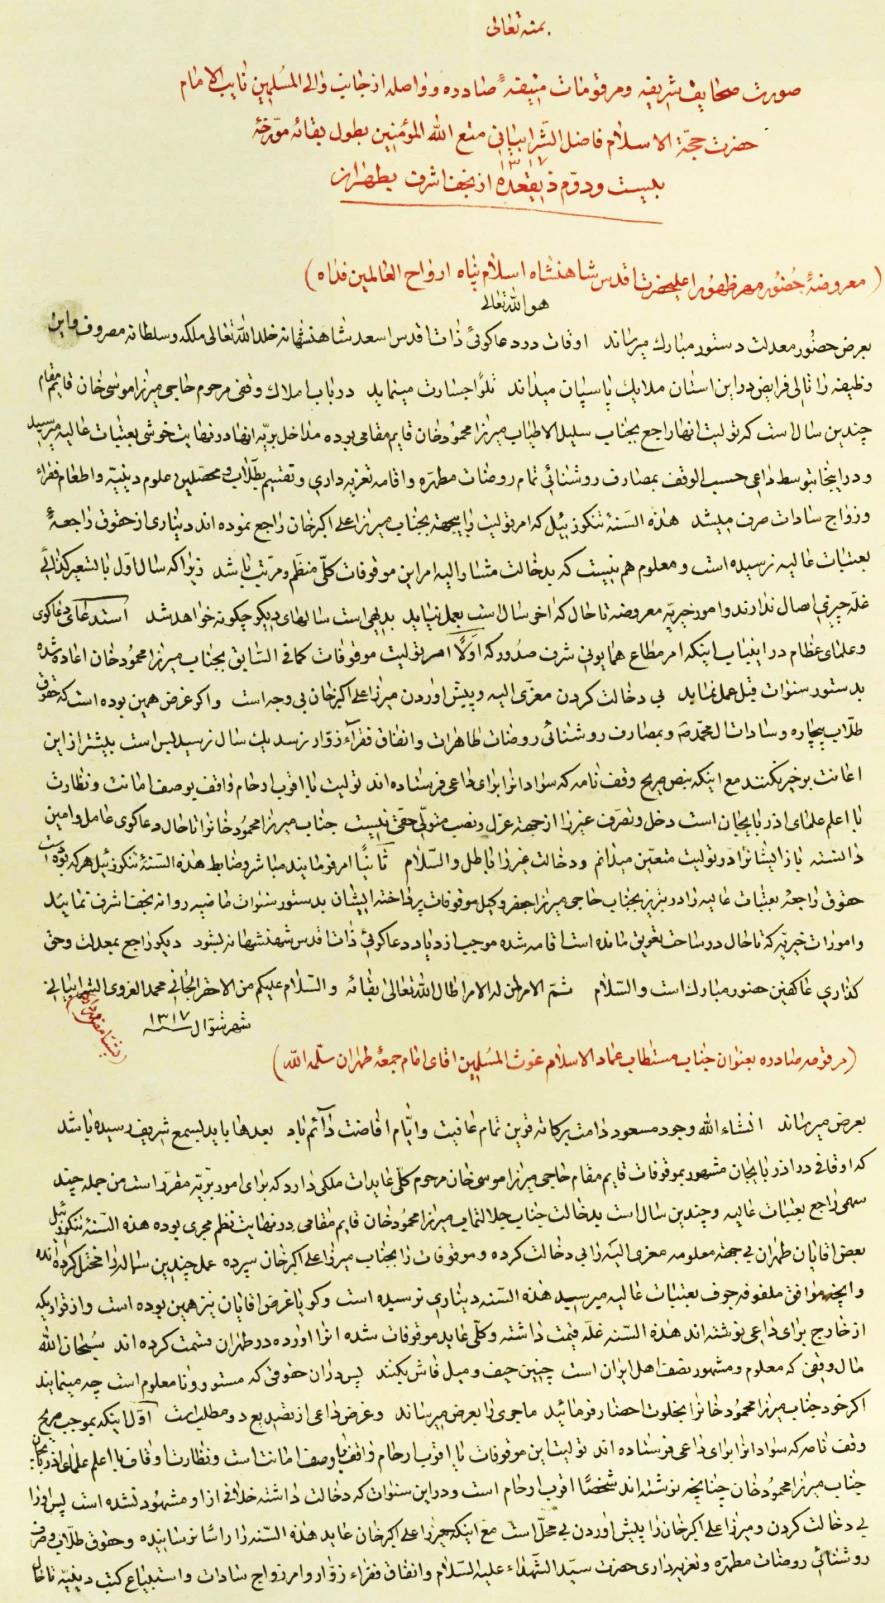 بمنه تعالی
صورت صحایف شریفه و مرقومات منیقهٔ صادره و واصله از جانب والی المسلمین نایب الامام
حضرت حجّة الاسلام فاضل الشرابیانی متع الله المؤمنین بطول بقائه مورّخهٔ
بیست و دوّم ذیقعده ۱۳۱۷ از نجف اشرف بطهران
(معروضهٔ حضور مهر ظهور اعلیحضرت اقدس شاهنشاه اسلام پناه ارواح العالمین فداه)
هو الله تعالی
بعرض حضور معدلت دستور مبارک میرساند اوقات در دعاکوئی ذات اقدس اسعد شاهنشاهانه خلد الله تعالی ملکه و سلطانه مصروف و این
وظیفه را تالی فرایض و در این استان ملایک پاسبان میداند تلواً جسارت مینماید در باب املاک وقفی مرحوم حاجی میرزا موسی خان قایم مقام
چندین سال است که تولیت انها راجع بجناب سلیل الاطیاب میرزا محمود خان قایم مقامی بوده مداخل بریّه انها در نهایت خوشی بعتبات عالیه میرسید
و در اینجا بتوسط داعی حسب الوقف بمصارف روشنائی تمام روضات مطهره و اقامه تعزیه داری و تقسیم بطلاب و محصلین علوم دینیّه و اطعام فقراء
و زواج سادات صرف میشد هذه السنهٔ تنکوز ئیل که امر تولیت را بیجهة بجناب میرزا علی اکبر خان راجع نموده اند دیناری از حقوق راجعهٔ
بعتبات عالیه نرسیده است و معلوم هم نیست که بدخالت مشار الیه امر این موقوفات کلّی منظم و مرتب باشد زیرا که سال اول بالتسعیر کذائی
غله چیزی ایصال ندارند و امور خیریّه معروضه تا حال که اخر سال است بعمل نیاید بدیهی است سالهای دیکر چکونه خواهد شد استدعای دعاکوی
و علمای عظام در اینباب اینکه امر مطاع همایونی شرف صدور که اولاً امر تولیت موقوفات کما فی السابق بجناب میرزا محمود خان اعاده شده
بدستور سنوات قبل عمل نماید بی دخالت کردن معزّی الیه و پیش اوردن میرزا علی اکبر خان بی وجه است و اکر غرض همین بوده است که حقوق
طلاب بیچاره و سادات ال محمّد ص و بمصارف روشنائی روضات طاهرات و انفاق فقرآء زوّار نرسد یک سال نرسید بس است بیشتر از این
اعانت بر خیر نکنند مع اینکه بنص صریح وقف نامه که سواد انرا برای داعی فرستاده اند تولیت با اقرب ارحام واقف بوصف امانت و نظارت
با اعلم علمای اذربایجان است دخل و تصرف غیر را از جهة عزل و نصب متولی حقی نیست جناب میرزا محمود خان را تا حال دعاکوی عامل و امین
دانسته باز ایشانرا در تولیت متعین میدانم و دخالت غیر را باطل والسلام ثانیاً امر فرمایند مباشر و ضابط هذه السنهٔ تنکوز ئیل هر که بوده است
حقوق راجعهٔ بعتبات عالیه را در تبریز بجناب حاجی میرزا جعفر وکیل موقوفات پرداخته ایشان بدستور سنوات ماضیه روانه نجف اشرف نمایند
و امورات خیریّه که تا حال در ساحت تعویق مانده است اقامه شده موجب ازدیاد دعاکوئی ذات اقدس شهنشهانه بشود دیکر راجع بمعدلت و حق
کذاری عاکفین حضور مبارک است والسلام ثمّ الامر لمن له الامر اطال الله تعالی بقائه والسلام علیکم من الاحقر الجانی محمد الغروی الشرابیانی
شهر شوّال ۱۳۱۷
(مرقومه صادره بعنوان جناب مستطاب عماد الاسلام غوث المسلمین اقای امام جمعهٔ طهران سلّمه الله)
بعرض میرساند انشاء الله وجود مسعود دامت برکاته قرین تمام عافیت و ایام افاضت دآئم باد بعدها باید بسمع شریف رسیده باشد
که اوقافی در اذربایجان مشهور بموقوفات قایم مقام حاجی میرزا موسی خان مرحوم کلّی عایدات ملکی دارد که برای امور بریّه مقرر است من جمله چند
سهمی راجع بعتبات عالیه و چندین سال است بدخالت جناب جلالتماب میرزا محمود خان قایم مقامی در نهایت نظم مجری بوده هذه السنهٔ تنکوز ئیل
بعض اقایان طهران بی جهة معلومه معزی الیه را بی دخالت کرده و موقوفات را بجناب میرزا علی اکبر خان سپرده عمل چندین ساله را مختل کرده اند
و انچه موافق ملفوفه جوف بعتبات عالیه میرسید هذه السنه دیناری نرسیده است و کویا غرض اقایان نیز همین بوده است و از قراریکه
از خارج برای داعی نوشته اند هذه السنه غله قیمت داشته و کلّی عاید موقوفات شده انرا اورده در طهران قسمت کرده اند سبحان الله
مال وقفی که معلوم و مشهور نصف اهل ایران است چنین حیف و میل فاش بکنند پس در ان حقوقی که مستور و نامعلوم است چه مینمایند
اکر خود جناب میرزا محمود خانرا بخلوت احضار فرمائید ماجری را بعرض میرساند و غرض داعی از تصدیع دو مطلب است اوّلا اینکه بموجب صریح
وقف نامه که سواد انرا برای داعی فرستاده اند تولیت این موقوفات با اقرب ارحام واقف با وصف امانت است و نظارت اوقاف با اعلم علمای اذربایجان
جناب میرزا محمود خان چنانچه نوشته اند شخصًا اقرب ارحام است و در این سنوات که دخالت داشته خلافی از او مشهود نشده است پس او را
بی دخالت کردن و میرزا علی اکبر خان را پیش اوردن بی محلّ است مع اینکه میرزا علی اکبر خان عاید هذه السنه را راسًا نرسانیده و حقوق طلاب و مصارف
روشنائی روضات مطهره و تعزیه داری حضرت سیّد الشهداء علیه السلام و انفاق فقراء زوّار و امر زواج سادات و استنباع کتب دینیّه تا حال